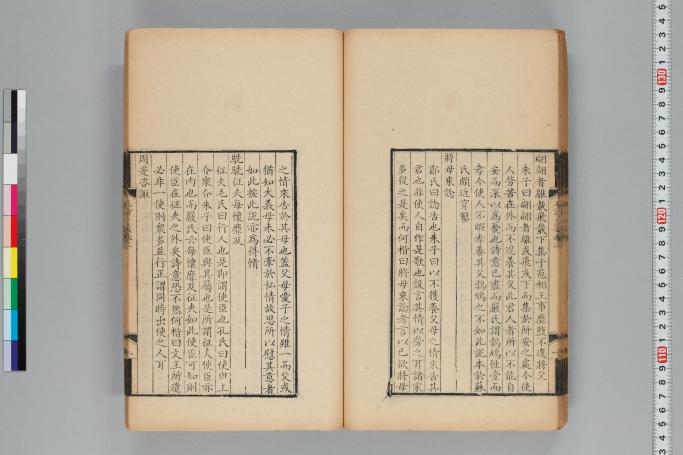 翩翩者鵻載飛載下集于苞栩王事靡盬不遑將父
朱子曰翩翩者鵻或飛或下而集於所安之處今使
人勞苦在外而不遑養其父此君人者所以不能自
安而深以為憂也詩意已盡而嚴氏謂鵓鳩性壹而
孝今使人不暇孝養其父鵓鳩之不如此說本於蘇
氏頗近穿鑿
將母來諗
鄭氏曰諗告也朱子曰以不獲養父母之情來告其
君也非使人自作是歌也設言其情以勞之耳諸家
多從之是矣而何楷曰將母來諗者言以己欲將母
之情來告於其母也蓋父母愛子之情雖一而父或
猶知大義母未必不牽於私情故思所以慰其意者
如此按此說亦為得情
駪駪征夫每懷靡及
征夫毛氏曰行人也是即謂使臣也孔氏曰使與上
介衆介朱子曰使臣與其屬也是所謂征夫使臣亦
在內也而嚴氏云每懷靡及征夫如此使臣可知則
使臣在征夫之外矣詩意恐不然何楷曰文王所遣
必非一使則衆多並行正謂同時出使之人耳
周爰咨諏